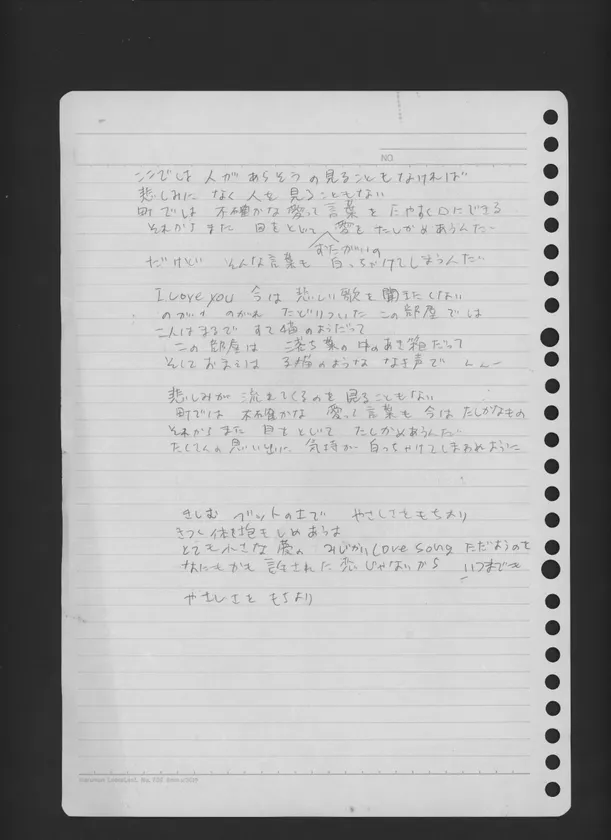 NO
ここでは 人が あらそうの見ることもなければ
悲しみに なく 人を 見ることもない
町では 不確かな愛って言葉を たやすく口にできる
それからまた 目をとじて 愛を たしかめあうんだ
おたがいの
だけど そんな言葉も 白っちゃけてしまうんだ
I Love you 今は 悲しい歌を 聞きたくない
のがれ のがれ たどりついた この部屋では
二人はまるで すて猫のようだって
この部屋は 落ち葉の中のあき箱だって
そしておまえは 子猫のような なき声で
悲しみが 流れてくるのを 見ることもない
町では 不確かな 愛って言葉も 今は たしかなもの
それからまた 目をとじて たしかめあうんだ
たくさんの思い出に 気持が 白っちゃけてしまわぬように
きしむ ベットの上で やさしさをもちより
きつく体を抱きしめあうは
とても小さな愛の みじかい Love song ただようのも
なにもかも 許された 恋じゃないから いつまでも
やさしさを もちより